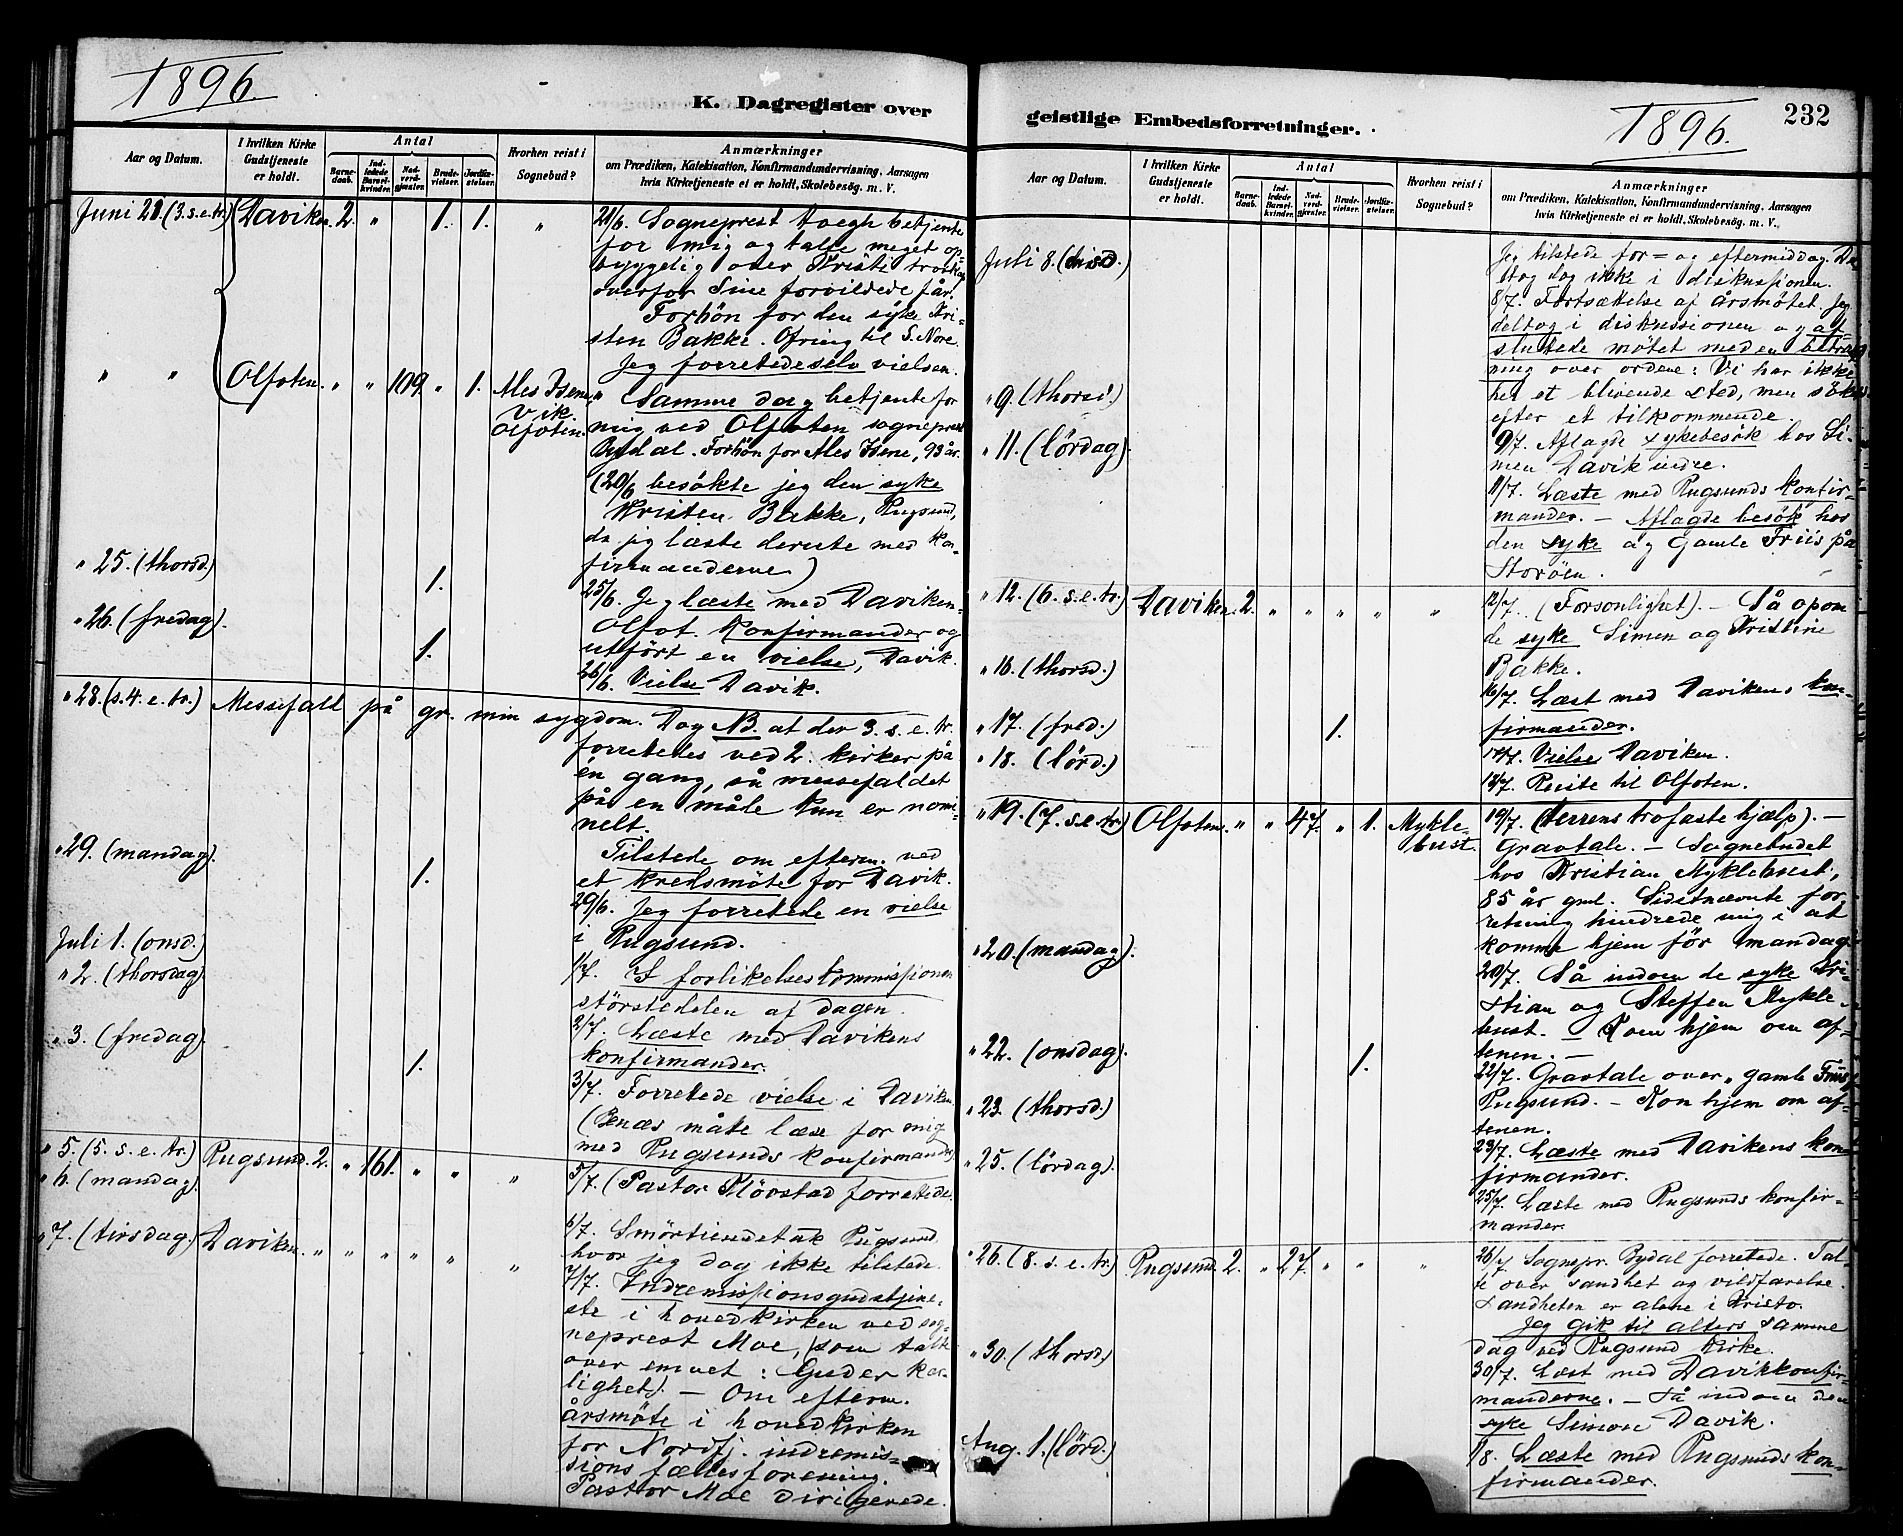 1896.
K. Dagregister over
Aar og Datum.
I hvilken Kirke Gudstjeneste er holdt.
Antal
Barnedaab.
Indledede Barselkvinder.
Nadverdgjester.
Brudevielser.
Jordfæstelser.
Hvorhen reist i Sognebud?
Anmærkninger
om Prædiken, Katekisation, Konfirmandundervisning, Aarsagen
hvis Kirketjeneste et er holdt, Skolebesøg. m. V.
Juni 21. (3. s. e. tr.) Daviken. 2. " 1. 1. "
21/6. Sogneprest betjente
for mig og talte meget op-
byggelig over Kristi
overfor Sine forvildede får.
Forbön for den syke Kri-
sten Bakke. Ofring til S. Nore.
Jeg forretede selv vielsen.
" " Olfoten. " " 109 " 1. Ales Isene, Vik. Olfoten.
" Samme dag betjente for
mig ved Olfoten sogneprest
Bydal. Forbön for Ales Isene, 93 år.
(20/6 besökte jeg den syke
Kristen Bakke, Rugsund,
da jeg læste derute med kon-
firmanderne)
" 25. (thorsd.) 1.
25/6. Jeg læste med Daviken-
Olfot. konfirmander og
utfört en vielse, Davik.
" 26. (fredag). 1.
26/6. Vielse Davik.
" 28. (s. 4. e. tr.) Messefald på gr. min sygdom. Dog NB. at der 3. s. e. tr.
forretedes ved 2. kirker på
én gang, så messefaldet
på en måte kun er nomi-
nelt.
Tilstede om efterm. ved
et kredsmöte for Davik.
" 29. (mandag). 1.
29/6. Jeg forretede en vielse
i Rugsund.
Juli 1. (onsd.)
1/7. I forlikelseskommissionen
störstedelen af dagen.
" 2. (thorsdag).
2/7. Læste med Davikens
konfirmander.
" 3. (fredag). 1.
3/7. Forretede vielse i Daviken
måte læse for mig
med Rugsunds konfirmander)
" 5. (5. s. e. tr.) Rugsund. 2. " 161. " " "
5/7. (Pastor Mövstad forrettede.
" 6. (mandag).
6/7. Smörtiendetak Rugsund,
hvor jeg dog ikke tilstede.
" 7. (tirsdag.) Daviken. " " " " " "
7/7. Indremissionsgudstjene-
ste i hovedkirken ved sog-
neprest Moe, (som talte
over emnet: Guder kær-
lighet). — Om efterm.
årsmöte i hovedkirken
for Nordfj. indremis-
sions fællesforening.
Pastor Moe dirigerede.
geistlige Embedsforretninger.
1896.
232
Aar og Datum.
I hvilken Kirke Gudstjeneste er holdt.
Antal
Barnedaab.
Indledede Barselkvinder.
Nadverdgjester.
Brudevielser.
Jordfæstelser.
Hvorhen reist i Sognebud?
Anmærkninger
om Prædiken, Katekisation, Konfirmandundervisning, Aarsagen
hvis Kirketjeneste et er holdt, Skolebesøg. m. V.
Jeg tilstede for= og eftermiddag.
tog dog ikke i diskussionen.
Juli 8. (onsd.)
8/7. Fortsættelse af årsmötet. Jeg
deltog i diskussionen og af-
sluttede mötet med en betragt-
ning over ordene: Vi har ikke
her et blivende sted, men söker
efter et tilkommende.
" 9. (thorsd.)
9/7. Aflagde sykebesök hos Si-
men Davik indre.
" 11. (lördag)
11/7. Læste med Rugsunds konfir-
mander. — Aflagde besök hos
den syke og gamle Friis på
Storöen.
" 12. (6. s. e. tr.) Daviken. 2. " " " " "
12/7. (Forsonlighet). — Så opom
de syke Simen og Kristine
Bakke.
" 16. (thorsd.)
16/7. Læst med Davikens kon-
firmander.
" 17. (fred.) 1.
17/7. Vielse Daviken.
" 18. (lörd.)
18/7. Reiste til Olfoten.
" 19. (7. s. e. tr.) Olfoten. " " 47. " 1. Mykle-
bust.
19/7. (Herrens trofaste hjælp). —
Gravtale. — Sognebudet
hos Kristian Myklebust,
85 år gml. Sidstnævnte for-
retning hindrede mig i at
komme hjem för mandag.
" 20. (mandag).
20/7. Så indom de syke Kri-
stian og Steffen Mykle-
bust. — Kom hjem om af-
tenen. —
" 22. (onsdag). 1.
22/7. Gravtale over "gamle Friis,"
Rugsund. — Kom hjem om af-
tenen.
" 23. (thorsd.)
23/7. Læste med Davikens kon-
firmander.
" 25. (lördag).
25/7. Læste med Rugsunds konfir-
mander.
" 26. (8. s. e. tr.) Rugsund. 2. " 27. " " "
26/7 Sognepr. Bydal forretede. Tal-
te over sandhet og vildfarelse.
Sandheten er alene i Kristo.
Jeg gik til alters samme
dag ved Rugsund kirke.
" 30. (thorsd.)
30/7. Læst med Davikkonfir-
manderne. — Så indom den
syke Simon Davik.
Aug. 1. (lörd.)
1/8. Læste med Rugsunds kon-
firmander.